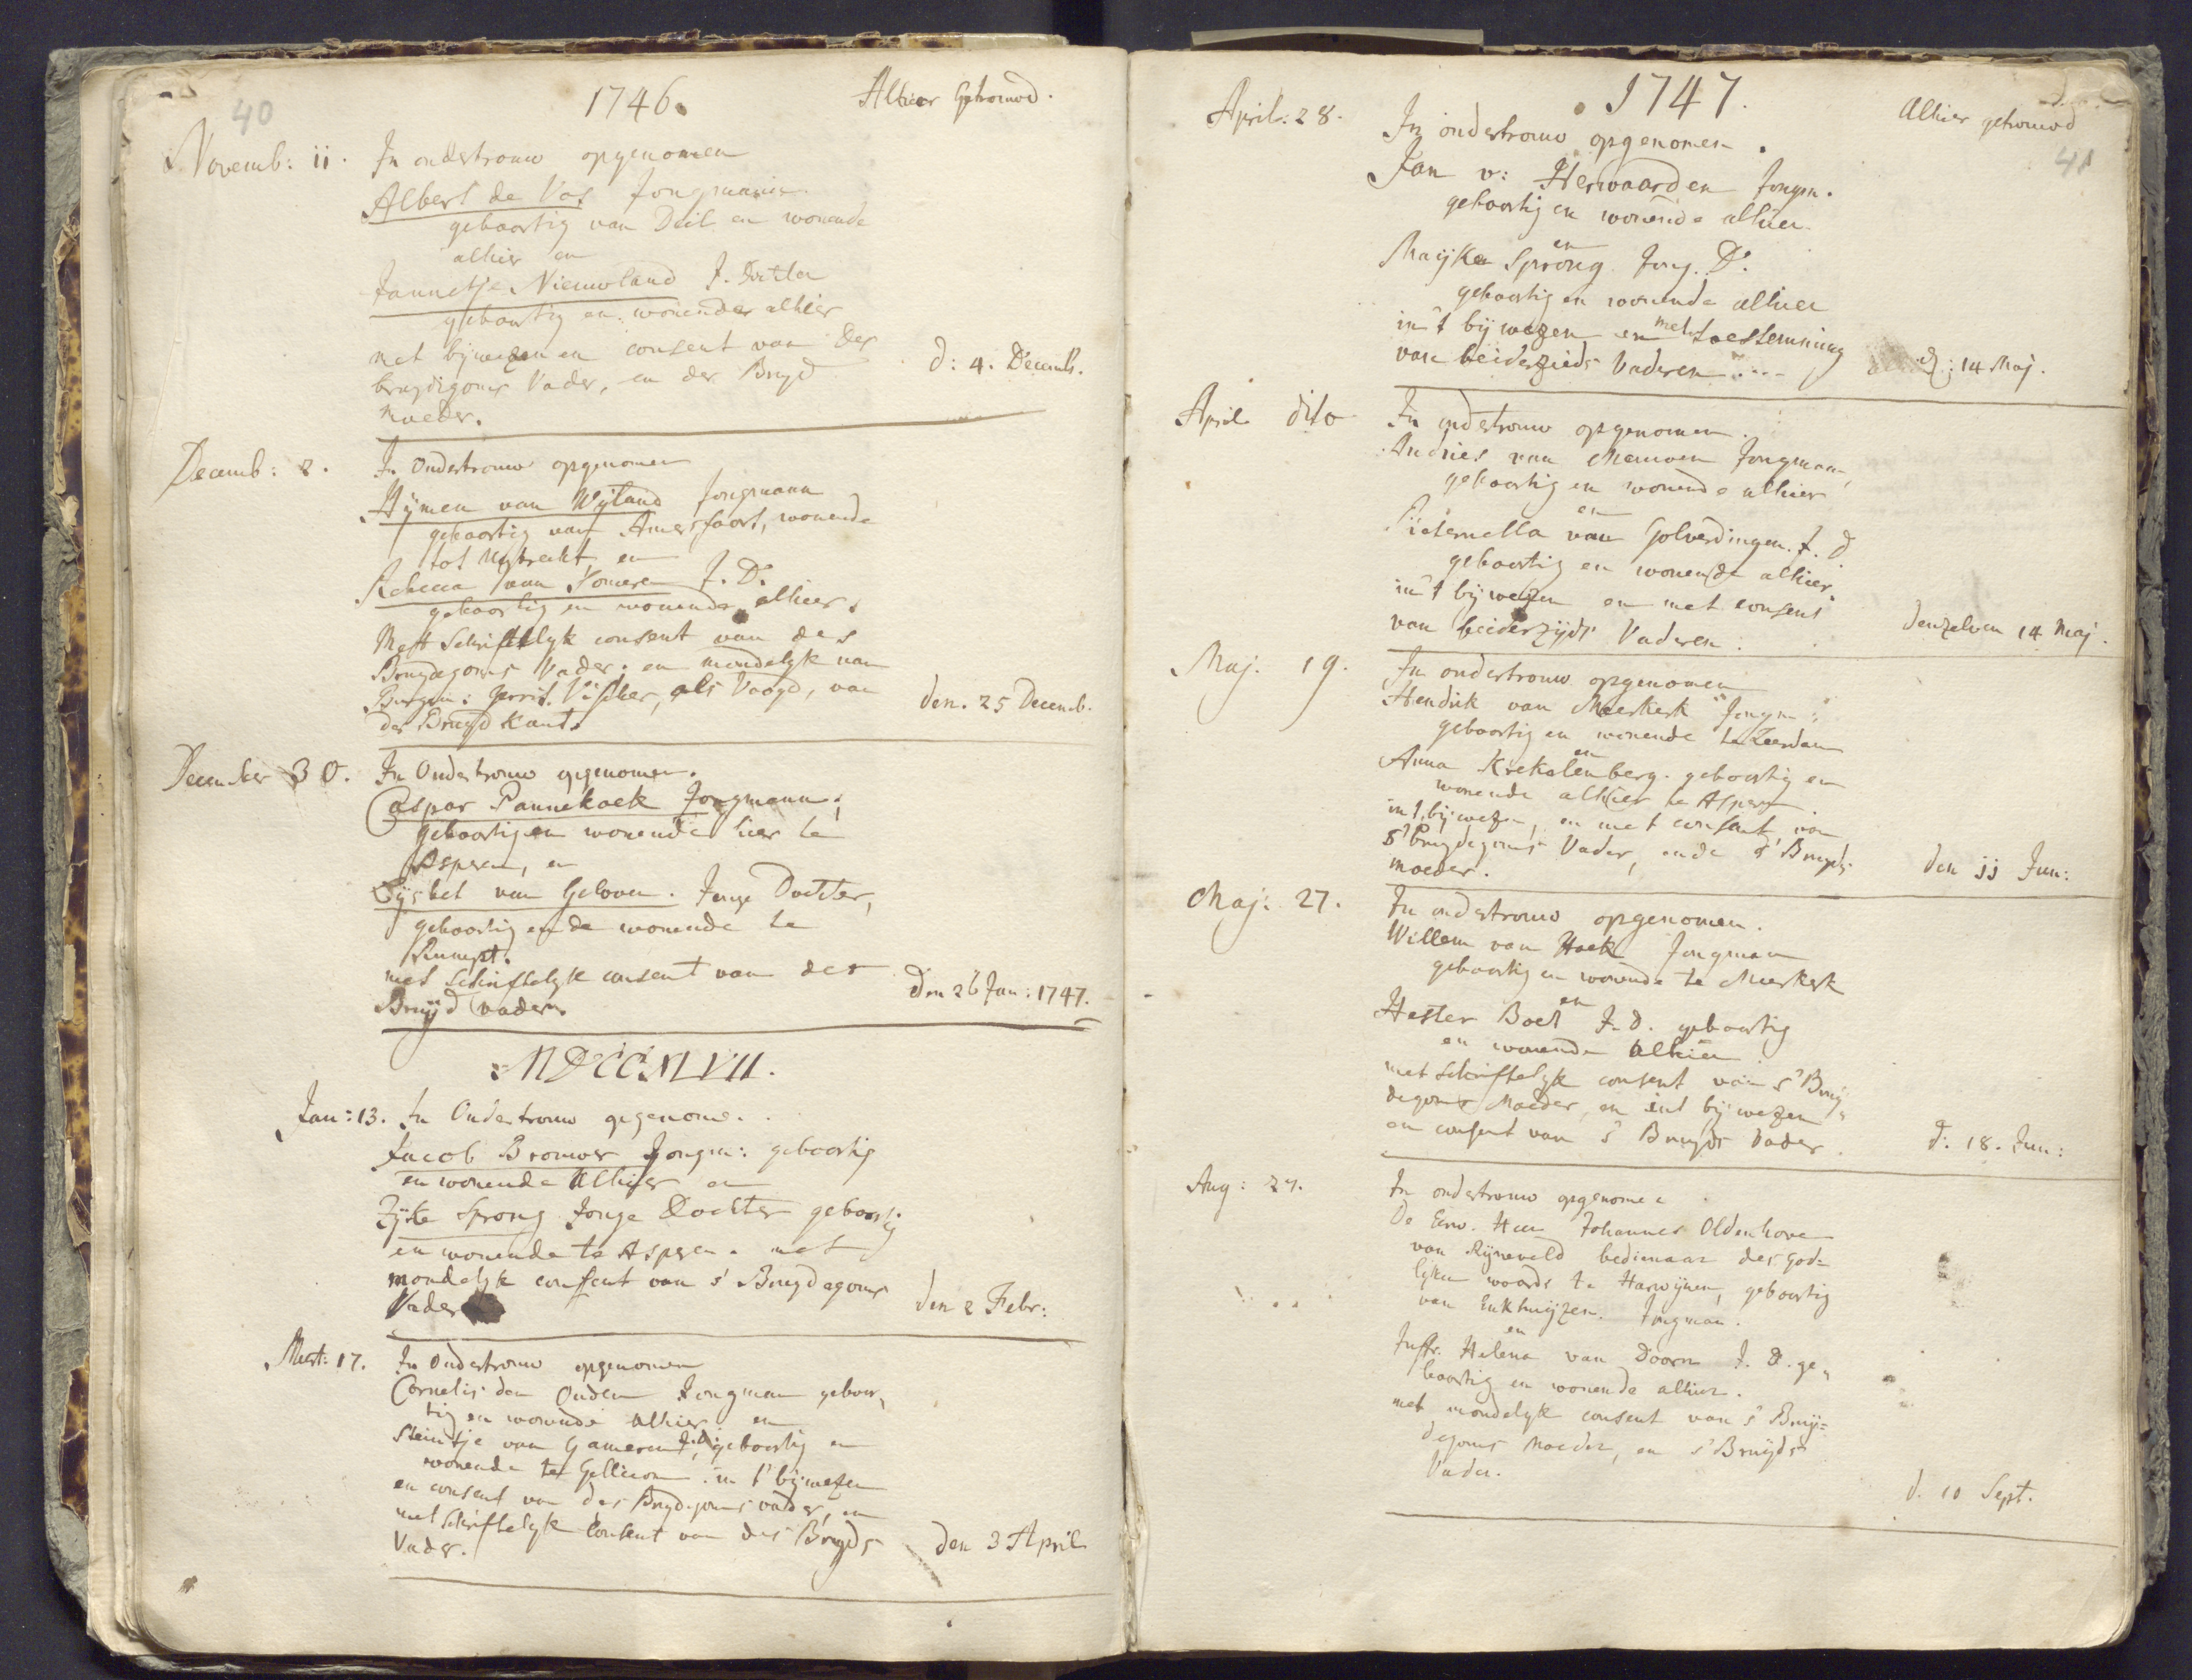 40
1746.
Alhier Getrouwd.
Novemb: 11.
In ondertrouw opgenomen
Albert de Vos Jongmann
geboortig van Deil en wonende
alhier en
Jannetje Nieuwland J. Dochter
geboortig en wonende alhier
met bijwezen en consent van des
bruydigoms Vader, en der Bruyd
moeder.
d: 4. Decemb.
Decemb: 2.
In Ondertrouw opgenomen
Hijmen van Wijland Jongmann
geboortig van Amersfoort, wonende
tot Uytrecht, en
Rebecca van Someren J. Dr.
geboortig en wonende alhier.
Mett Schriftelyk consent van des
Bruydegoms Vader, en mondelyk van
Burgem: Gerrit Visscher, als Voogd, van
des Bruyd kant.
den. 25 Decemb.
December 30.
In Ondertrouw opgenomen.
Caspar Pannekoek Jongmann,
geboortig en wonende hier te
Asperen, en
Lijsbet van Geloven. Jonge Dochter,
geboortig ende wonende te
Rumpt.
met Schriftelyk consent van der
Bruijd vader.
Den 26 Jan: 1747.
MDCCXLVII.
Jan: 13.
In Ondertrouw opgenomen.
Jacob Brouwer Jongm: geboortig
en wonende Alhier en
Zijke Sprong Jonge Dochter geboortig
en wonende te Asperen. met
mondelyk consent van s' Bruydegoms
Vader
den 2 Febr:
Mert: 17.
In Ondertrouw opgenomen
Cornelis den Ouden Jongman geboor,
tig en wonende Alhier en
Steintje van Gameren J.d. geboortig en
wonende te Gellicom. in t' bijwezen
en consent van des Bruydegoms vader, en
met Schriftelyk Consent van des Bruyds
Vader.
den 3 April
1747.
Alhier getrouwd
41
April: 28.
In ondertrouw opgenomen.
Jan v: Herwaarden Jongm.
geboortig en wonende alhier
en
Maijke Sprong Jong. Dr.
geboortig en wonende alhier
in 't bijwezen en met toestemming
van beiderzieds Vaderen....
d: 14 Maj.
April dito
In ondertrouw opgenomen.
Andries van Meuwen Jongman,
geboortig en wonende alhier
en
Pieternella van Golverdingen. J. d
geboortig en wonende alhier.
in 't bijwezen en met consent
van beiderzijds Vaderen.
denzelven 14 Maj.
Maj. 19.
In ondertrouw opgenomen
Hendrik van Meerkerk Jongm:
geboortig en wonende te Leerdam
en
Anna Krekelenberg. geboortig en
wonende alhier te Asperen.
in 't bijwezen, en met consent, van
s' Bruydegoms Vader, ende s' Bruyds
moeder.
den 11 Jun:
Maj: 27.
In ondertrouw opgenomen.
Willem van Hoek Jongman
geboortig en wonende te Meerkerk
en
Hester Boel J.d. geboortig
en wonende Alhier
met Schriftelyk consent van s' Bruy,
degoms Moeder, en int bijwezen
en consent van s' Bruyds Vader.
d: 18. Jun:
Aug: 27.
In ondertrouw opgenomen
De Eerw. Heer Johannes Oldenhove
van Rijneveld bedienaar des God-
lyken woords te Harwijnen, geboortig
van Enkhuijzen. Jongman.
en
Juffr. Helena van Doorn J. D. ge,
boortig en wonende alhier.
met mondelyk consent van s' Bruij-
degoms Moeder, en s' Bruijds
Vader.
d. 10 Sept.